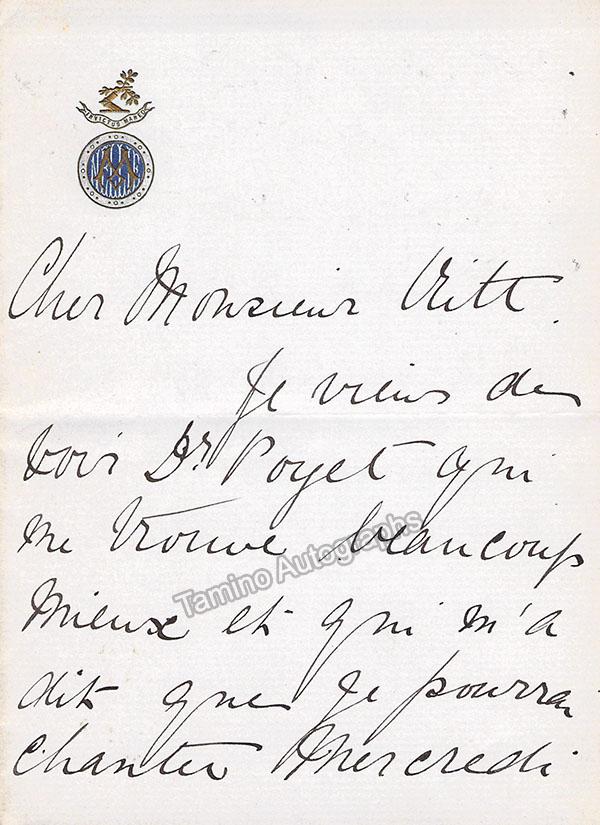 INVICTUS MANEO
NELLIE
Cher Monsieur Ritt.
Je viens de
voir Dr Poyet qui
me trouve beaucoup
Tamino Autographs
mieux et qui m'a
dit que je pourrai
chanter Mercredi